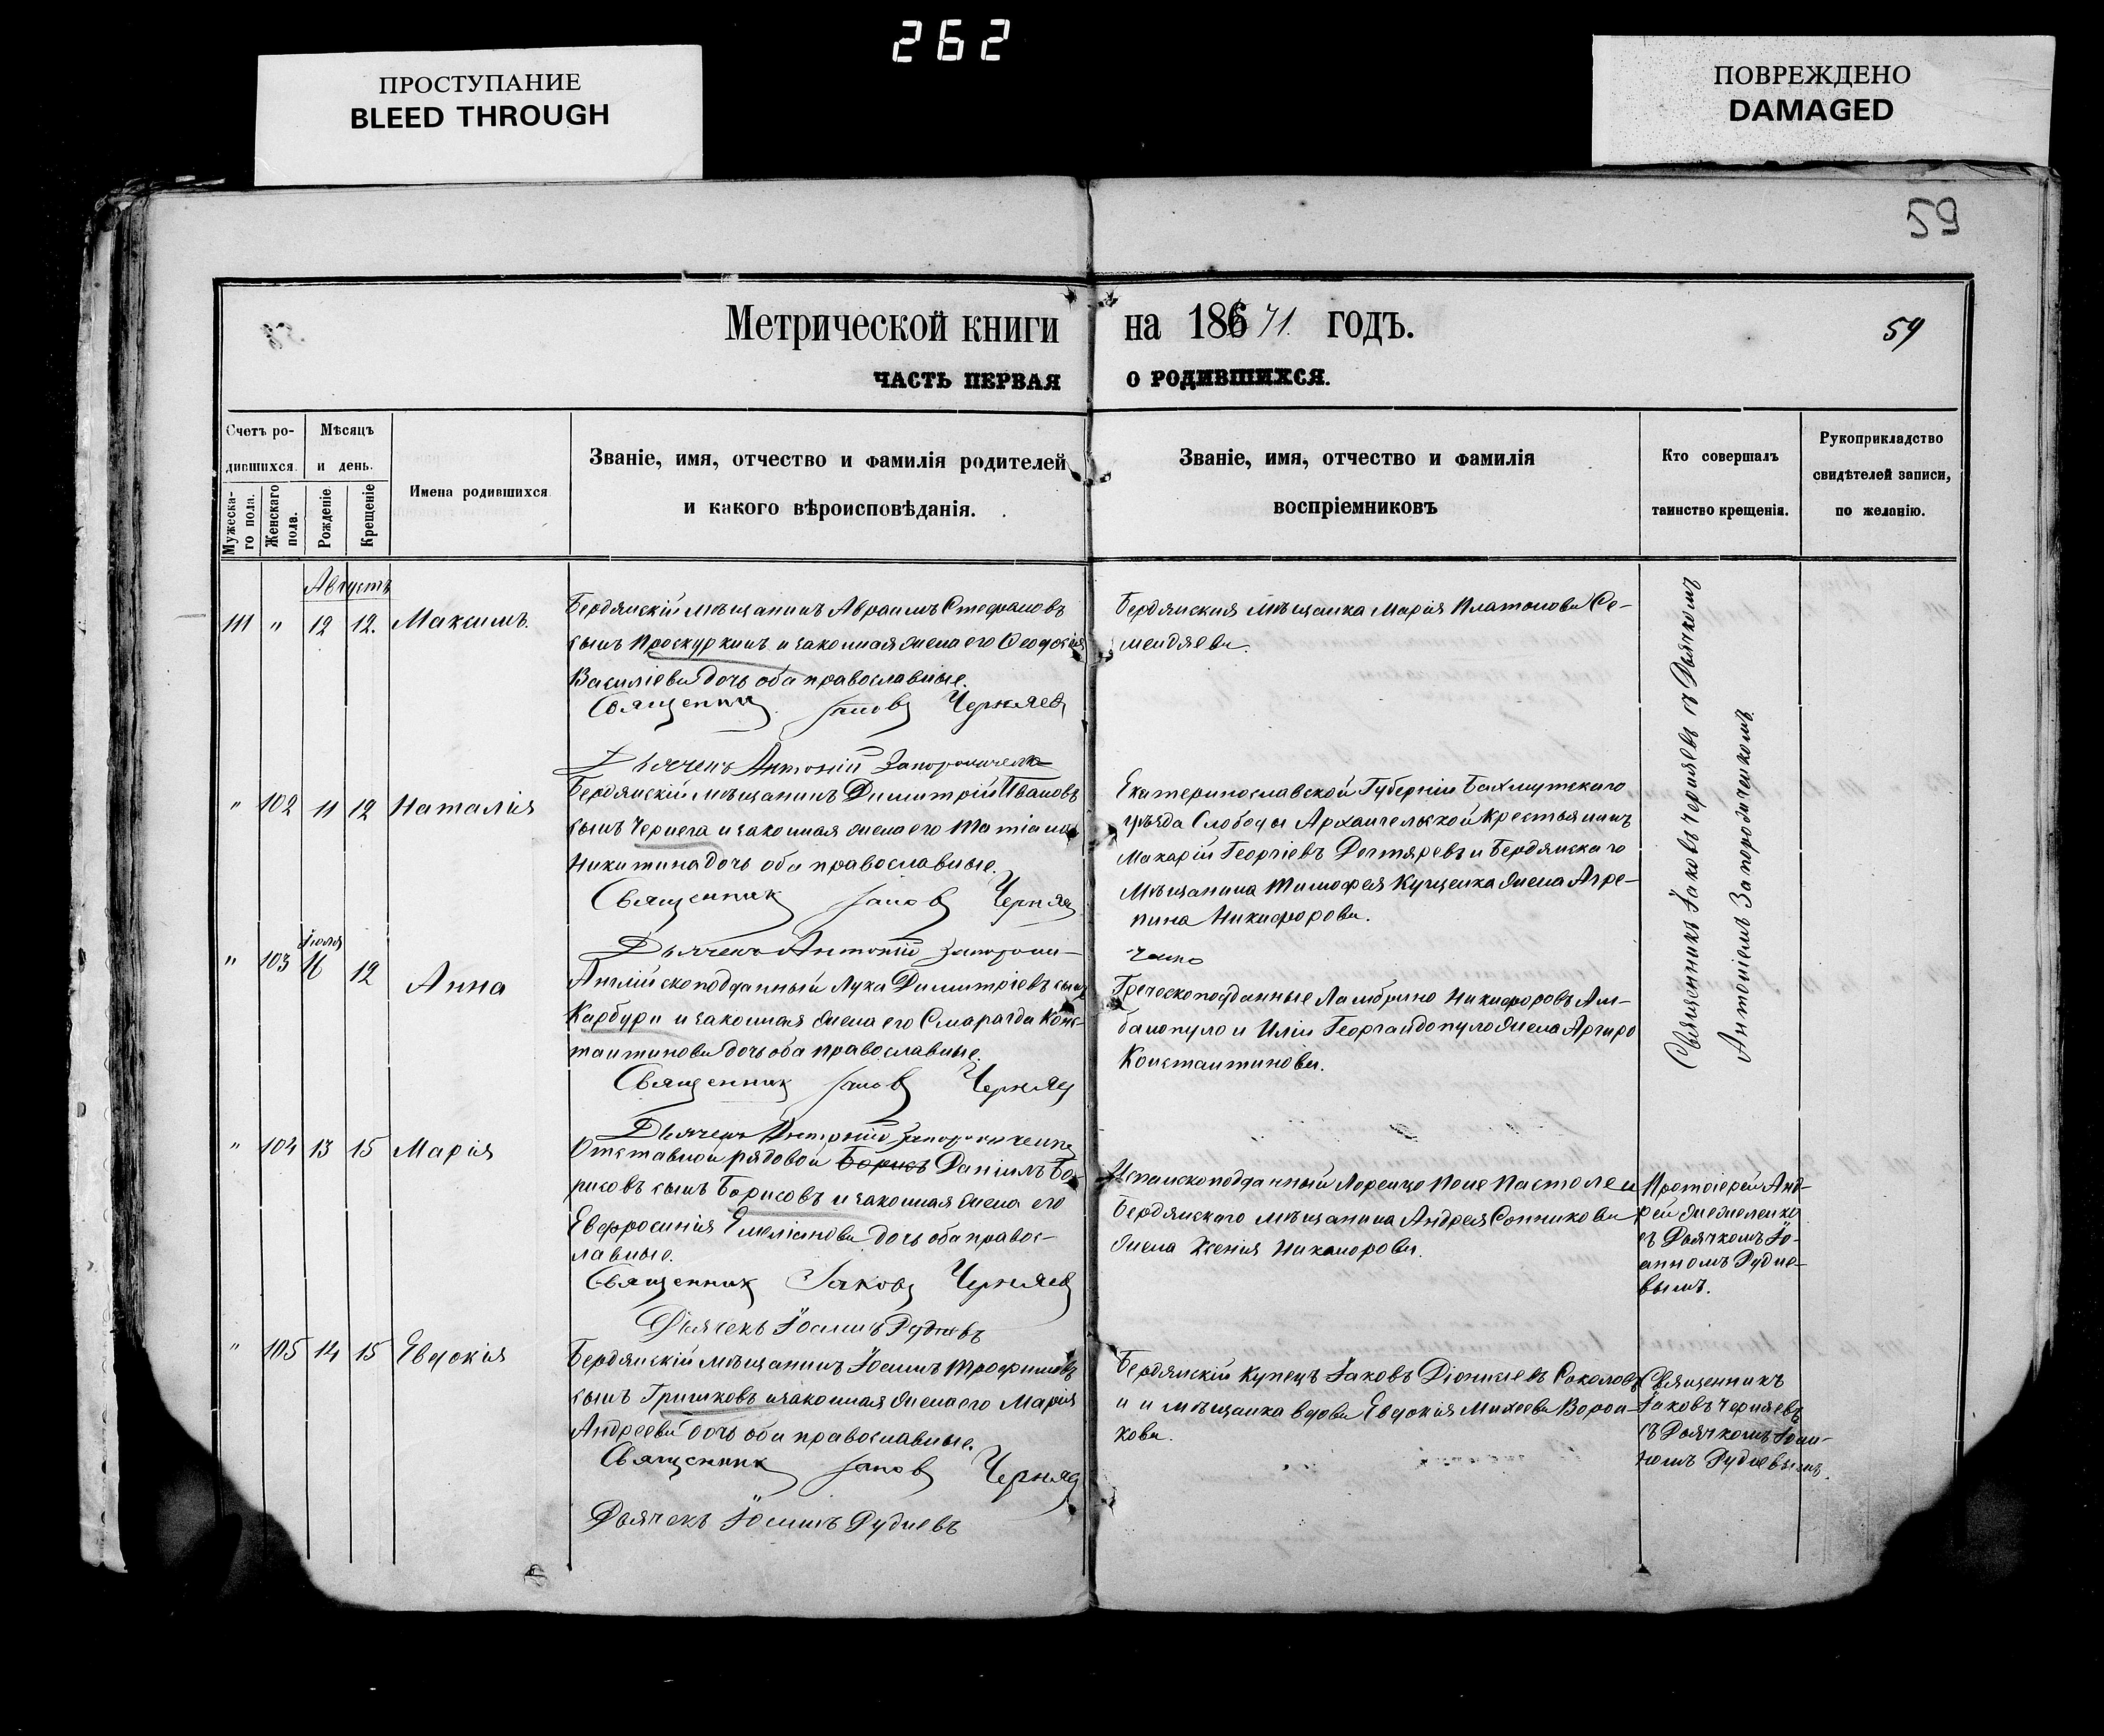 262
ПРОСТУПАНИЕ
BLEED THROUGH
ПОВРЕЖДЕНО
DAMAGED
59
Метрической книги на 186 71. годъ.
59
ЧАСТЬ ПЕРВАЯ О РОДИВШИХСЯ.
Счетъ родившихся.
Мужескаго пола.
Женскаго пола.
Мѣсяцъ и день.
Рожденіе
Крещеніе
Имена родившихся
Званіе, имя, отчество и фамилія родителей
и какого вѣроисповѣданія.
Званіе, имя, отчество и фамилія
воспріемниковъ
Кто совершалъ
таинство крещенія.
Рукоприкладство
свидѣтелей записи,
по желанію.
Августъ
111 " 12 12. Максимъ.
Бердянскій мѣщанинъ Авраамъ Стефановъ
сынъ Проскуркинъ и законная жена его Ѳеодосія
Василіева дочь оба православные.
Священникъ Іаковъ Черняевъ
Дьячекъ Антоній Запороженко
Бердянская мѣщанка Марія Платонова Се-
мендяева.
Священникъ Іаковъ Черняевъ съ Дьячкомъ
Антоніемъ Запороженкомъ.
" 102 11 12 Наталія
Бердянскій мѣщанинъ Димитрій Ивановъ
сынъ Чернега и законная жена его Татіана
Никитина дочь оба православные.
Священникъ Іаковъ Черняев
Дьячекъ Антоній Запороже-
Екатеринославской Губерніи Бахмутскаго
уѣзда Слободы Архангельской крестьянинъ
Макарій Георгіевъ Дегтяревъ и Бердянскаго
мѣщанина Тимофея Куценка жена Агре-
пина Никифорова.
нко
" 103 Іюля 16 12 Анна
Англійскоподданный Лука Димитріевъ сынъ
Карбури и законная жена его Смарагда Конс-
тантинова дочь оба православные.
Священникъ Іаковъ Черняев
Дьячекъ Антоній Запороженко
Греческоподданные Ламбрино Никифоровъ Ам-
банопуло и Иліи Георгандопуло жена Аргиро
Константинова.
" 104 13 15 Марія
Отставной рядовой Борисъ Даніилъ Бо-
рисовъ сынъ Борисовъ и законная жена его
Евфросинія Емеліанова дочь оба правос-
лавные.
Священникъ Іаковъ Черняевъ
Дьячекъ Іоаннъ Рудневъ
Испанскоподданный Лоренцо Поне Пастоле и
Бердянскаго мѣщанина Андрея Сотникова
жена Ксенія Никанорова.
Протоіерей Анд-
рей
съ Дьячкомъ Іо-
анномъ Рудне-
вымъ.
" 105 14 15 Евдокія
Бердянскій мѣщанинъ Іоаннъ Трофимовъ
сынъ Гришковъ и законная жена его Марія
Андреева дочь оба православные.
Священникъ Іаковъ Черняев
Дьячекъ Іоаннъ Рудневъ
Бердянскій купецъ Іаковъ Діонисіевъ Соколовъ
и и мѣщанка вдова Евдокія Михеева Ворон-
кова.
Священникъ
Іаковъ Черняевъ
съ Дьячкомъ Іоан-
номъ Рудневымъ.